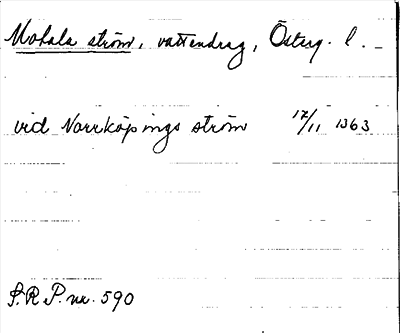 Motala ström, vattendrag, Österg. l.
vid Norrköpings ström 17/11 1363
S.R.P. nr. 590